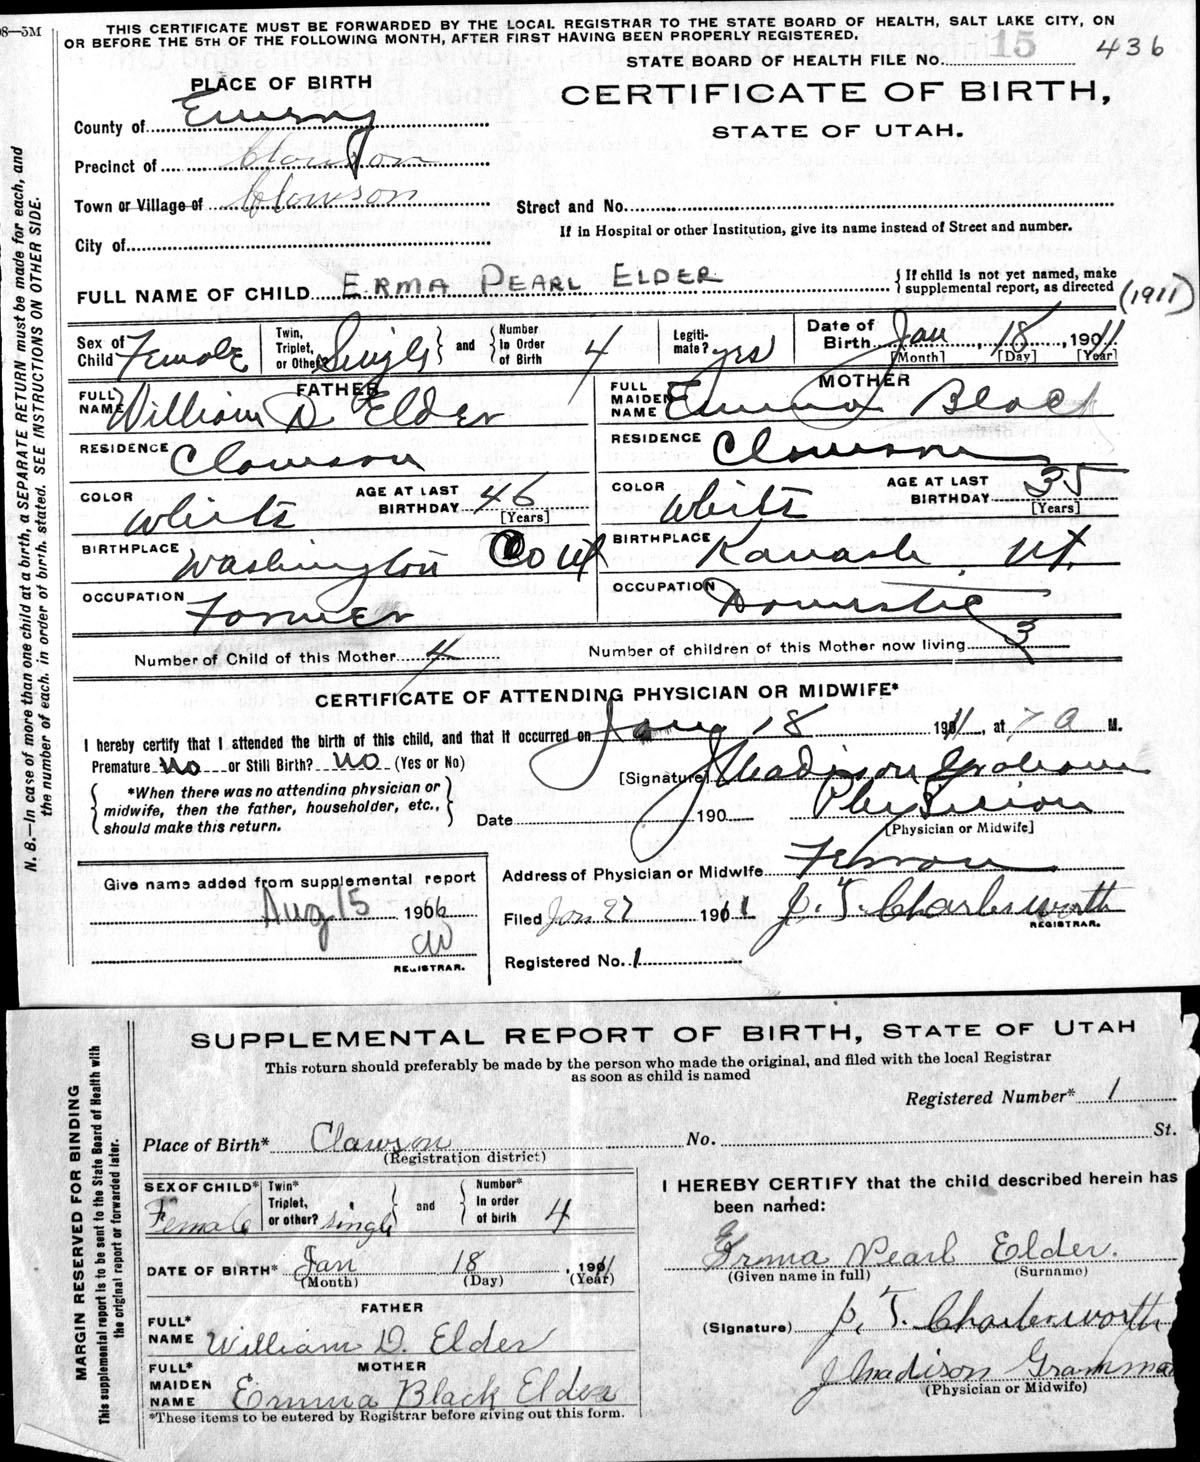 98—5M
THIS CERTIFICATE MUST BE FORWARDED BY THE LOCAL REGISTRAR TO THE STATE BOARD OF HEALTH, SALT LAKE CITY, ON
OR BEFORE THE 5TH OF THE FOLLOWING MONTH, AFTER FIRST HAVING BEEN PROPERLY REGISTERED.
STATE BOARD OF HEALTH FILE No. 15 436
PLACE OF BIRTH
CERTIFICATE OF BIRTH,
STATE OF UTAH.
County of Emery
Precinct of Clawson
Town or Village of Clawson
Street and No.
If in Hospital or other Institution, give its name instead of Street and number.
City of
FULL NAME OF CHILD ERMA PEARL ELDER { If child is not yet named, make supplemental report, as directed (1911)
Sex of Child Female Twin, Triplet, or Other? Single } and { Number In Order of Birth 4 Legitimate? yes Date of Birth Jan, 18, 1911
[Month] [Day] [Year]
FATHER
FULL NAME William D Elder
MOTHER
FULL MAIDEN NAME Emma Black
RESIDENCE Clawson
RESIDENCE Clawson
COLOR White AGE AT LAST BIRTHDAY 46 [Years]
COLOR White AGE AT LAST BIRTHDAY 35 [Years]
BIRTHPLACE Washington Co Ut
BIRTHPLACE Kanash, Ut.
OCCUPATION Farmer
OCCUPATION Domestic
Number of Child of this Mother 4 Number of children of this Mother now living 3
CERTIFICATE OF ATTENDING PHYSICIAN OR MIDWIFE*
I hereby certify that I attended the birth of this child, and that it occurred on Jany 18 1911, at 7 a M.
Premature No or Still Birth? No (Yes or No)
[Signature] J Madison Graham
{ *When there was no attending physician or midwife, then the father, householder, etc., should make this return. }
Date 190
Physician
[Physician or Midwife]
Give name added from supplemental report
Aug 15 1966
CW
REGISTRAR.
Address of Physician or Midwife Ferron
Filed Jan 27 1911 J. T. Charlesworth
REGISTRAR.
Registered No. 1
N. B.—In case of more than one child at a birth, a SEPARATE RETURN must be made for each, and
the number of each, in order of birth, stated. SEE INSTRUCTIONS ON OTHER SIDE.
SUPPLEMENTAL REPORT OF BIRTH, STATE OF UTAH
This return should preferably be made by the person who made the original, and filed with the local Registrar
as soon as child is named
Registered Number* 1
Place of Birth* Clawson No. St.
(Registration district)
SEX OF CHILD* Female Twin* Triplet, or other? single } and { Number* In order of birth 4
DATE OF BIRTH* Jan 18, 1911
(Month) (Day) (Year)
FATHER
FULL* NAME William D. Elder
MOTHER
FULL* MAIDEN NAME Emma Black Elder
*These items to be entered by Registrar before giving out this form.
I HEREBY CERTIFY that the child described herein has
been named:
Erma Pearl Elder.
(Given name in full) (Surname)
(Signature) J. T. Charlesworth
J Madison Gramman
(Physician or Midwife)
MARGIN RESERVED FOR BINDING
This supplemental report is to be sent to the State Board of Health with
the original report or forwarded later.